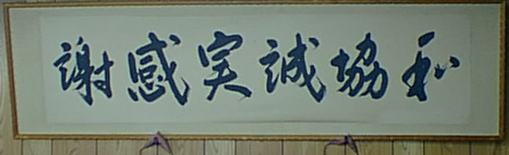 和協誠実感謝